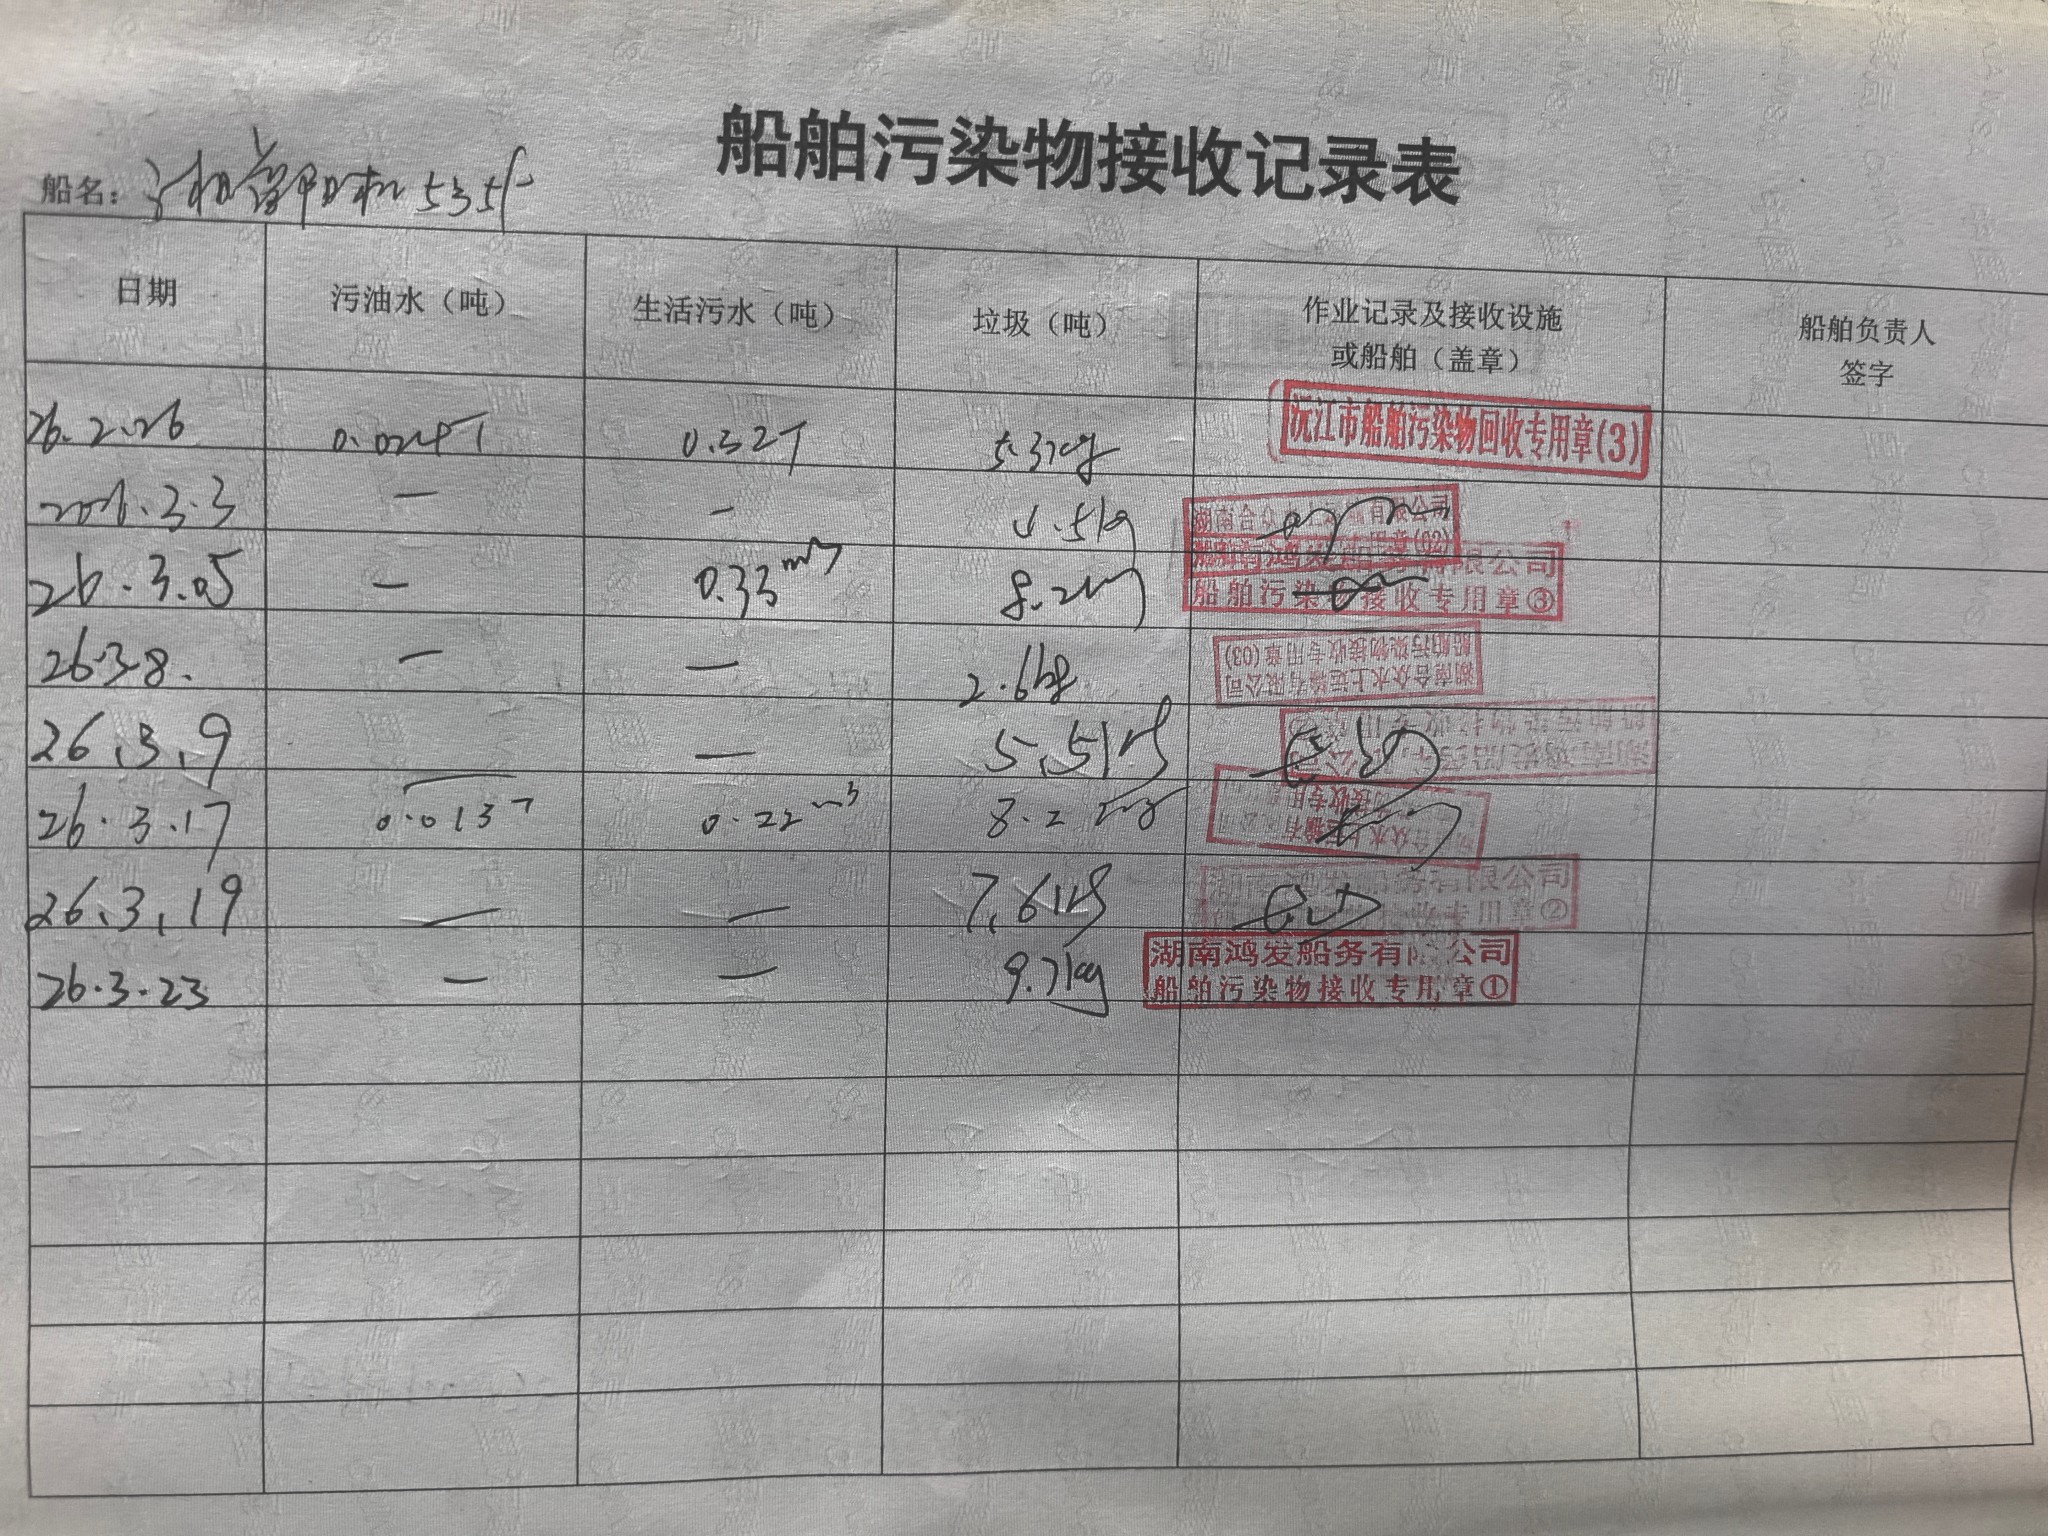 船舶污染物接收记录表
船名：
日期 污油水（吨） 生活污水（吨） 垃圾（吨） 作业记录及接收设施或船舶（盖章） 船舶负责人签字
26.2.26 0.024T 0.32T 5.3kg 沅江市船舶污染物回收专用章(3)
2026.3.3 — — 4.5kg
26.3.05 — 0.33m³ 8.2kg 船舶污染物接收专用章③
26.3.8. — — 2.6kg 湖南合众水上运输有限公司 船舶污染物接收专用章(03)
26.3.9 — 5.5kg
26.3.17 0.013T 0.22m³ 8.2kg
26.3.19 — — 7.6kg 专用章②
26.3.23 — — 9.7kg 湖南鸿发船务有限公司 船舶污染物接收专用章①